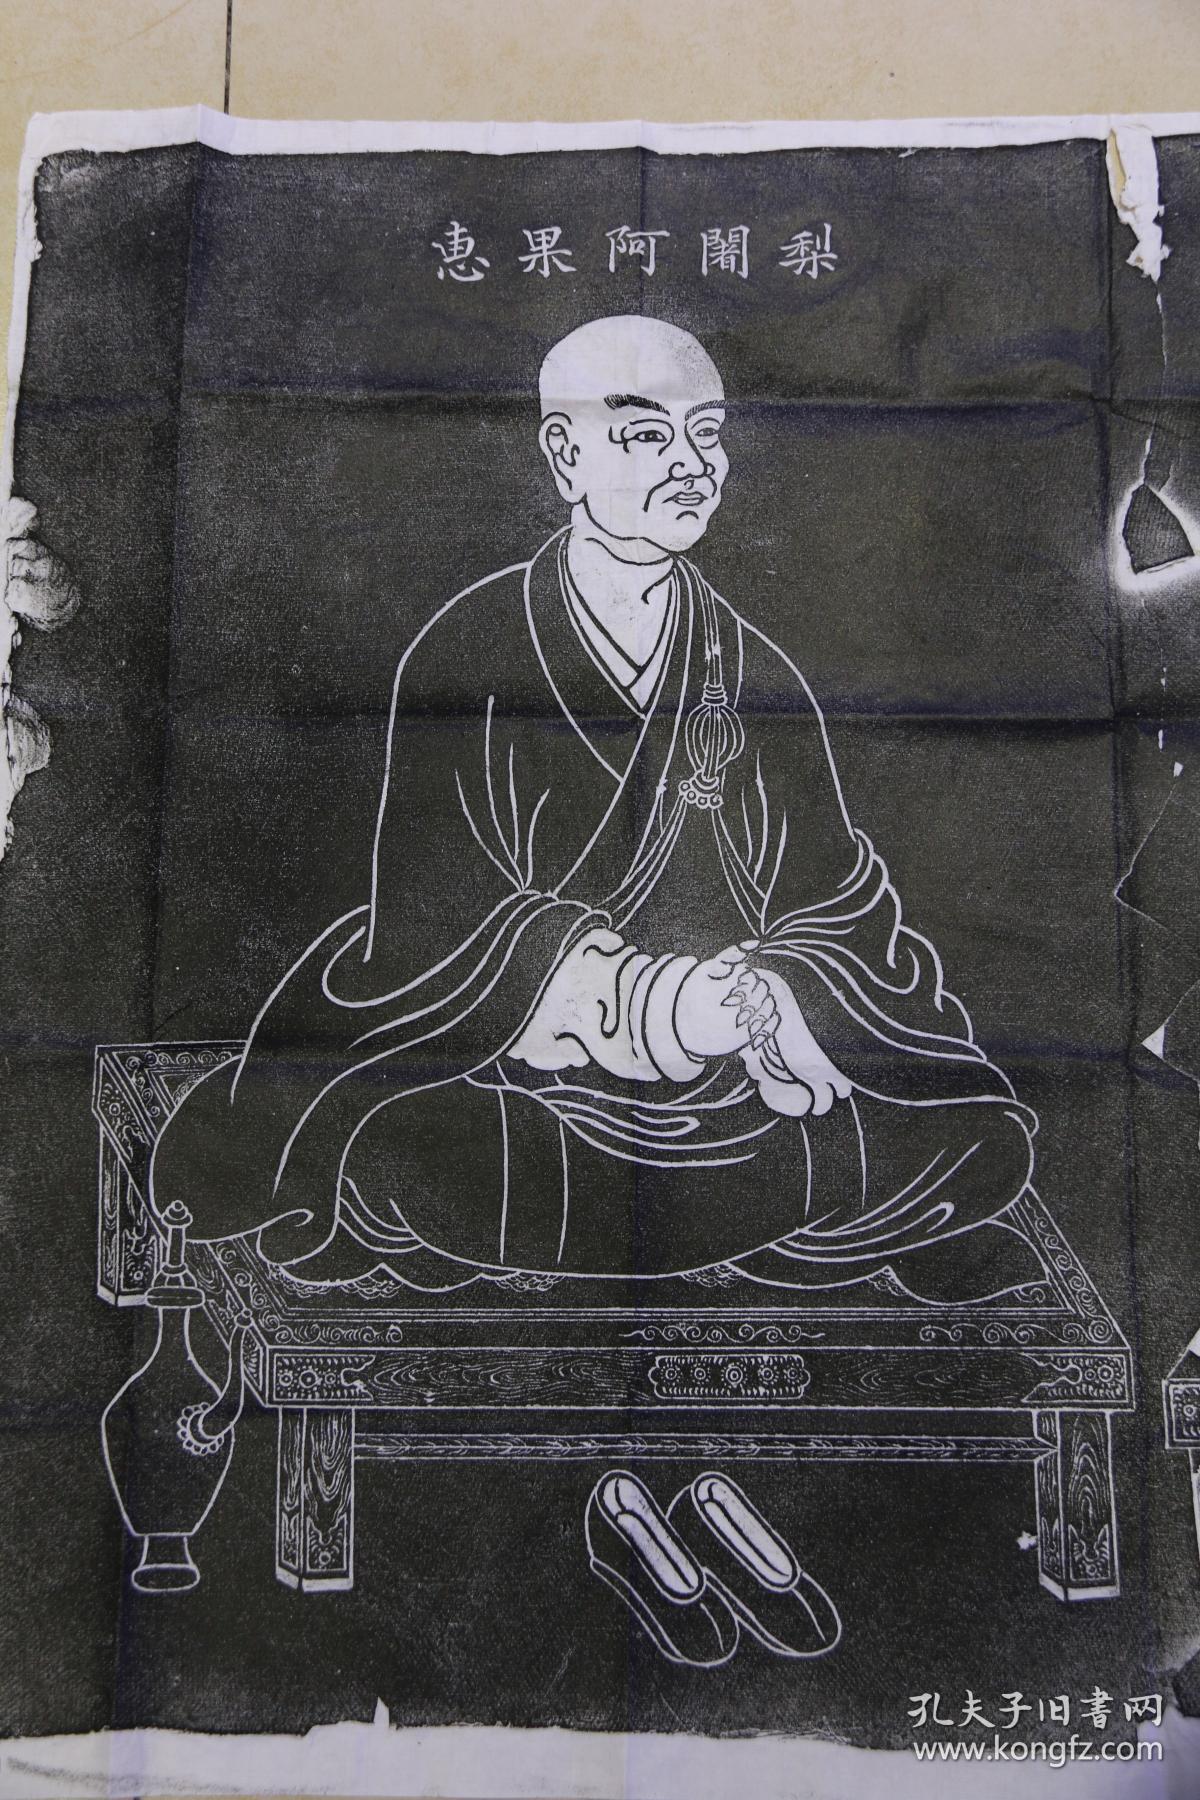 惠果阿闍梨
孔夫子旧書网
www.kongfz.com